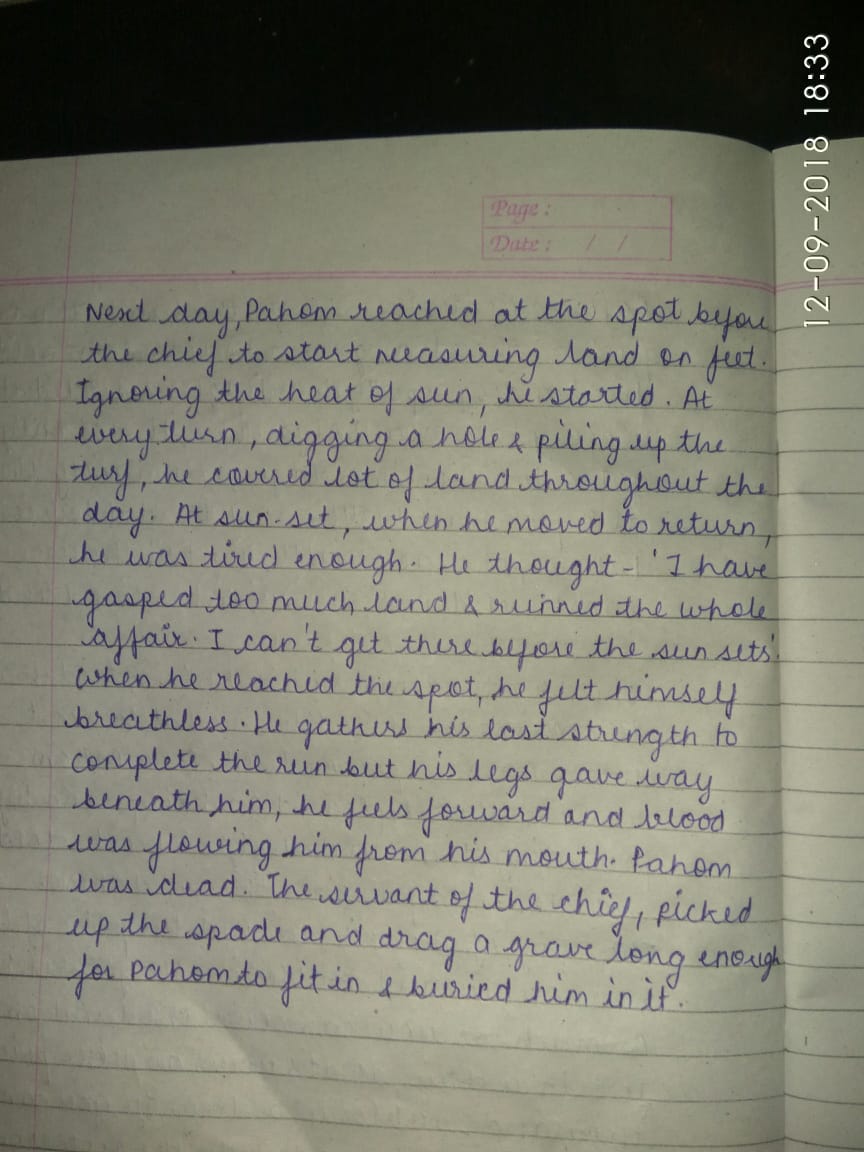 Page :
Date : / /
Next day, Pahom reached at the spot before
the chief to start measuring land on feet.
Ignoring the heat of sun, he started. At
every turn, digging a hole & piling up the
turf, he covered lot of land throughout the
day. At sun-set, when he moved to return,
he was tired enough. He thought - 'I have
gasped too much land & ruinned the whole
affair. I can't get there before the sun sets'.
When he reached the spot, he felt himself
breathless. He gathers his last strength to
complete the run but his legs gave way
beneath him, he feels forward and blood
was flowing him from his mouth. Pahom
was dead. The servant of the chief, picked
up the spade and drag a grave long enough
for Pahom to fit in & buried him in it.
12-09-2018 18:33